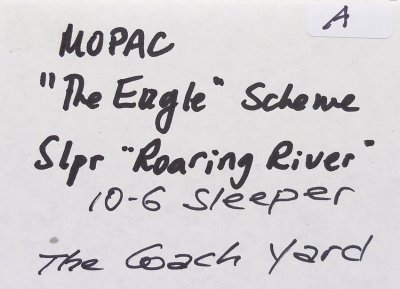 A
MOPAC
"The Eagle" Scheme
Slpr "Roaring River"
10-6 Sleeper
The Coach Yard